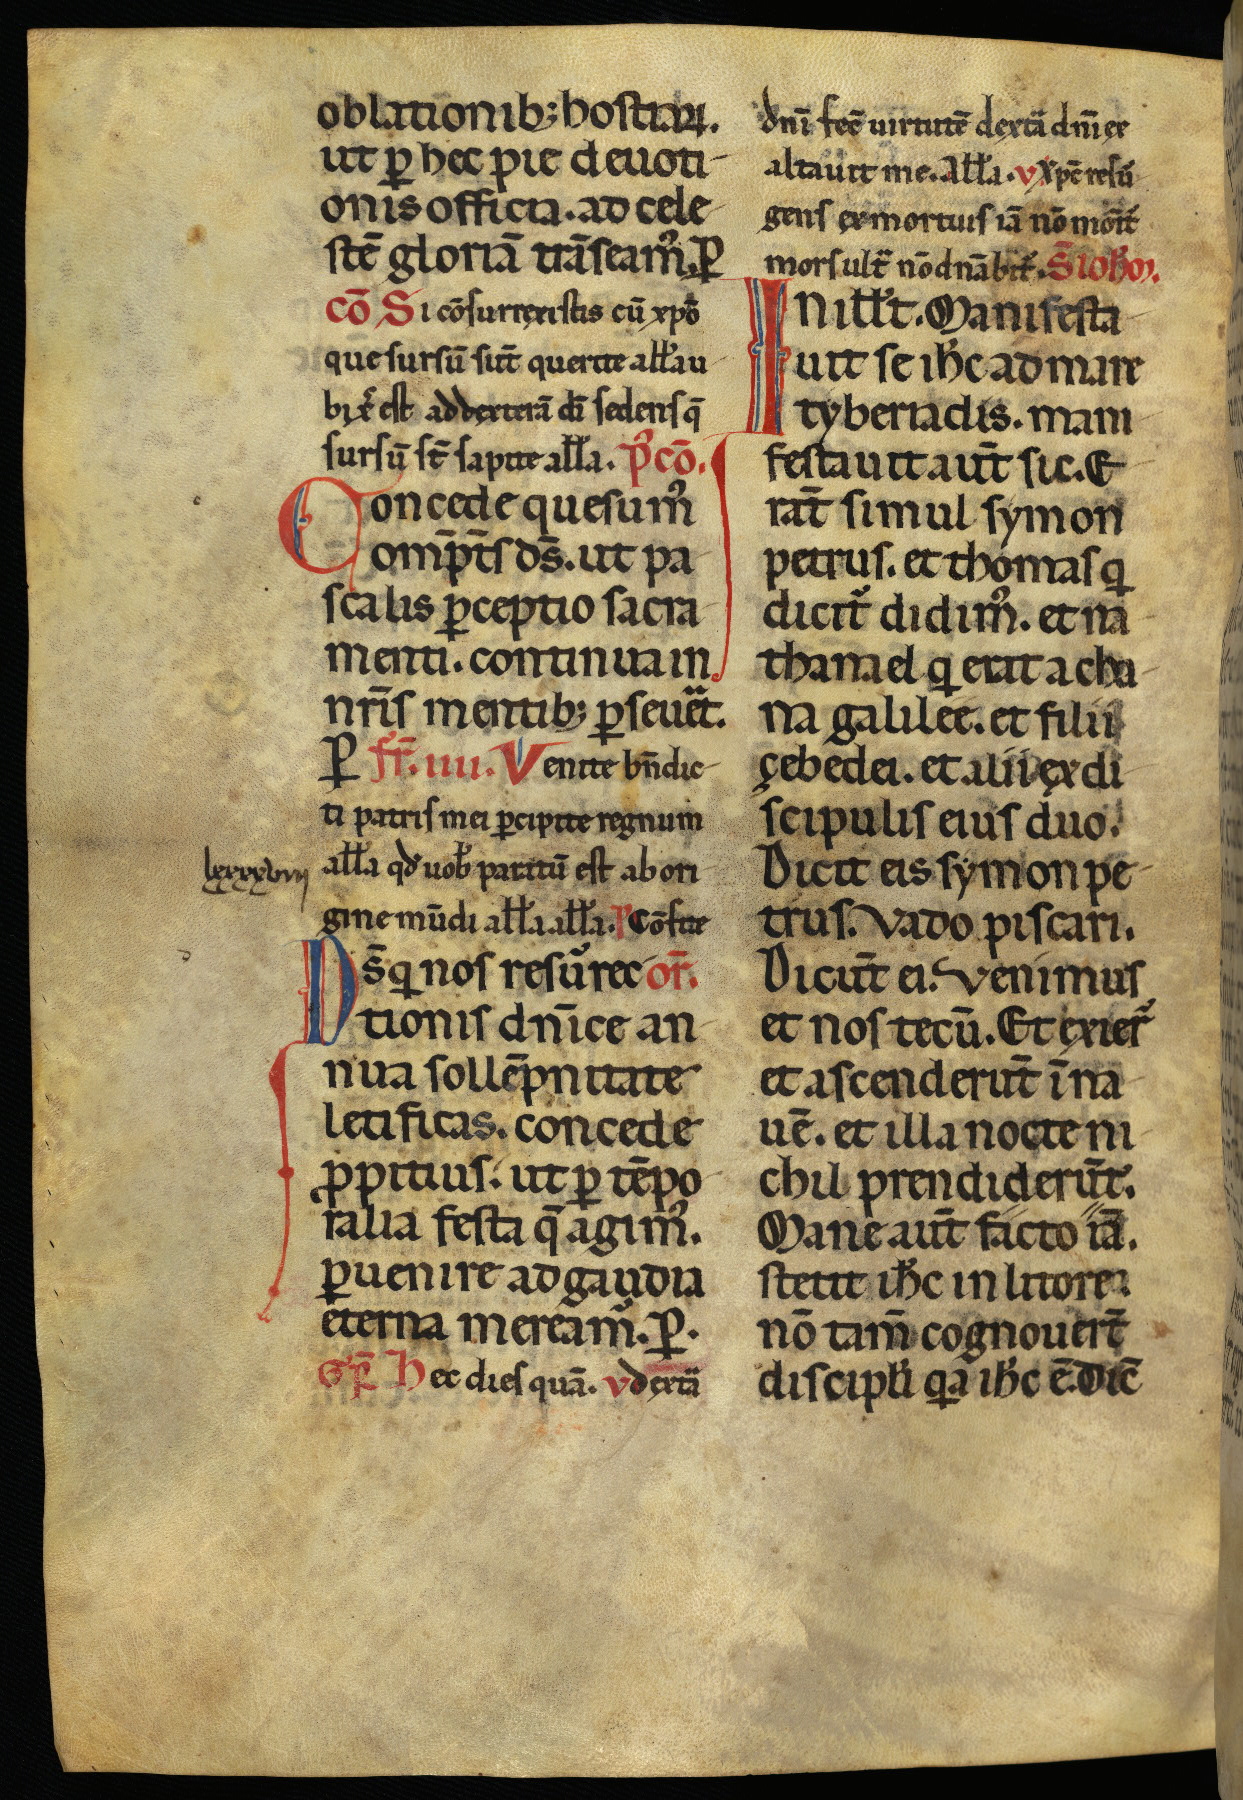 oblationib; hostiaꝝ.
ut ꝑ hec pie deuoti-
onis officia. ad cele-
stē gloriā trāseam᷒. ꝑ
cō Si cōsurrexistis cū xpō
que sursū sūt querite all'a u
bi xp̄ est ad dexterā dī sedens q̄
sursū st̄ sapite all'a. p᷒cō.
Concede quesum᷒
omp̄ts ds̄. ut pa
scalis ꝑceptio sacra
menti. continua in
nr̄is mentib; ꝑseuet̄.
ꝑ fr̄. iiii. Venite bn̄dic-
ti patris mei ꝑcipite regnum
all'a qd' uob' paratū est ab ori
lxxxxviii
gine mūdi all'a all'a. p᷒ Cōfite
Ds̄ q nos resurrec or̄.
tionis dn̄ice an-
nua sollēpnitate
letificas. concede
ꝓpitius. ut ꝑ tēpo
ralia festa q̄ agim᷒.
ꝑuenire ad gaudia
eterna meream᷒. ꝑ.
Gr̄ Hec dies quā. v dextā
dn̄i fec̄ uirtutē dextā dn̄i ex
altauit me. All'a. v Xpc̄ resu
gens ex mortuis iā nō morit̄
mors ult̄ nō dn̄abit̄. S ioh'm.
In ill't. Manifesta
uit se ih'c ad mare
tyberiadis. mani
festauit aut̄ sic. E
rat̄ simul symon
petrus. et thomas q
dicit᷒ didim᷒. et na
thanael q erat a cha
na galilee. et filii
çebedei. et alii ex di
scipulis eius duo.
Dicit eis symon pe
trus. Vado piscari.
Dicūt ei. Venimus
et nos tecū. Et exier᷒
et ascenderūt ī na
uē. et illa nocte ni
chil prendiderūt.
Mane aut̄ facto iā.
stetit ih'c in litore.
nō tam̄ cognouert̄
discipl'i qa ih'c ē. Dic̄